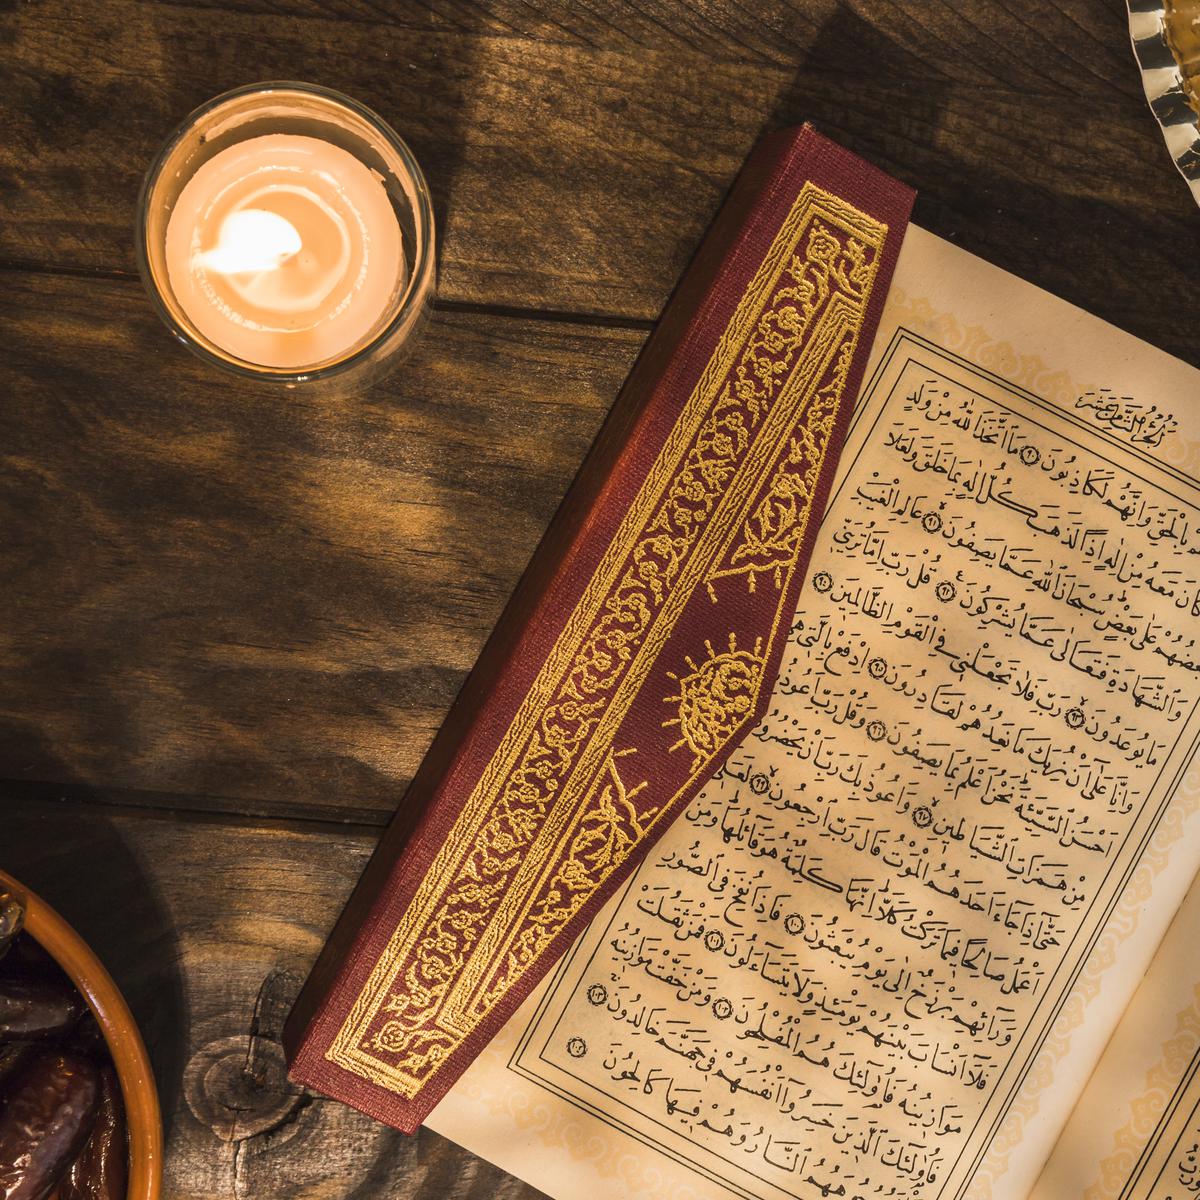 الجزء الثامن عشر
بِالْحَقِّ وَاِنَّهُمْ لَكَاذِبُونَ ٩٠ مَا اتَّخَذَ اللّٰهُ مِنْ وَلَدٍ
كَانَ مَعَهُ مِنْ اِلٰهٍ اِذًا لَذَهَبَ كُلُّ اِلٰهٍ بِمَا خَلَقَ وَلَعَلَا
بَعْضُهُمْ عَلٰى بَعْضٍ سُبْحَانَ اللّٰهِ عَمَّا يَصِفُونَ ٩١ عَالِمِ الْغَيْبِ
وَالشَّهَادَةِ فَتَعَالٰى عَمَّا يُشْرِكُونَ ٩٢ قُلْ رَبِّ اِمَّا تُرِيَنِّي
مَا يُوعَدُونَ ٩٣ رَبِّ فَلَا تَجْعَلْنِي فِي الْقَوْمِ الظَّالِمِينَ ٩٤
وَاِنَّا عَلٰى اَنْ نُرِيَكَ مَا نَعِدُهُمْ لَقَادِرُونَ ٩٥ اِدْفَعْ بِالَّتِي هِيَ
اَحْسَنُ السَّيِّئَةَ نَحْنُ اَعْلَمُ بِمَا يَصِفُونَ ٩٦ وَقُلْ رَبِّ اَعُوذُ
مِنْ هَمَزَاتِ الشَّيَاطِينِ ٩٧ وَاَعُوذُ بِكَ رَبِّ اَنْ يَحْضُرُونِ
حَتّٰى اِذَا جَاءَ اَحَدَهُمُ الْمَوْتُ قَالَ رَبِّ ارْجِعُونِ ٩٩ لَعَلِّي
اَعْمَلُ صَالِحًا فِيمَا تَرَكْتُ كَلَّا اِنَّهَا كَلِمَةٌ هُوَ قَائِلُهَا وَمِنْ
وَرَائِهِمْ بَرْزَخٌ اِلٰى يَوْمِ يُبْعَثُونَ ١٠٠ فَاِذَا نُفِخَ فِي الصُّورِ
فَلَا اَنْسَابَ بَيْنَهُمْ يَوْمَئِذٍ وَلَا يَتَسَاءَلُونَ ١٠١ فَمَنْ ثَقُلَتْ
مَوَازِينُهُ فَاُولٰئِكَ هُمُ الْمُفْلِحُونَ ١٠٢ وَمَنْ خَفَّتْ مَوَازِينُهُ
فَاُولٰئِكَ الَّذِينَ خَسِرُوا اَنْفُسَهُمْ فِي جَهَنَّمَ خَالِدُونَ ١٠٣
وُجُوهَهُمُ النَّارُ وَهُمْ فِيهَا كَالِحُونَ ١٠٤